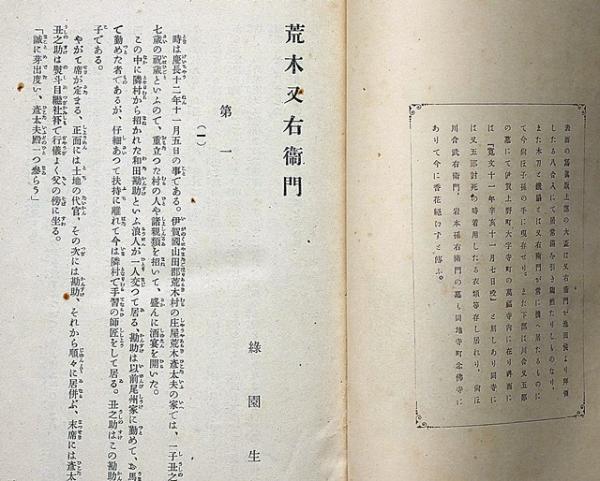 表面の寫眞版上部の大盃は又右衞門が池田侯より拜領
したる八合入にて居常を引陶然たりしものなり、
また木刀と鐵扇とは又右衞門が常に携へ居たるものに
て今尙ほ子孫の手に現存せり。また下部は川合又五郎
の墓にて伊賀上野町大字寺町の萬福寺內に在り碑面に
は「寬文十一年辛亥十一月七日歿」と刻しあり同寺に
は又五郎討死の時着用したる衣類等存し居れり、尙ほ
川合武右衞門、岩本孫右衞門の墓も同地寺町念佛寺に
ありて今に香花絕けずと傳ふ。
荒木又右衞門
綠園生
第一
(一)
時は慶長十二年十一月五日の事である。伊賀國山田郡荒木村の庄屋荒木彥太夫の家では、一子丑之
七歲の祝歲といふので、重立つた村の人や諸親類を招いて、盛んに酒宴を開いた。
この中に隣村から招かれた和田勘助といふ浪人が一人交つて居る、勘助は以前尾州家に勤めて、お馬
て勤めた者であるが、仔細あつて扶持に離れて今は隣村で手習の師匠をして居る。丑之助はこの勘助
子である。
やがて席が定まる、正面には土地の代官、その次には勘助、それから順々に居併ぶ、末席には彥太
丑之助は熨斗目繼社裃で行儀よく父の傍に坐る。
「誠に芽出度い、彥太夫殿一つ參らう」